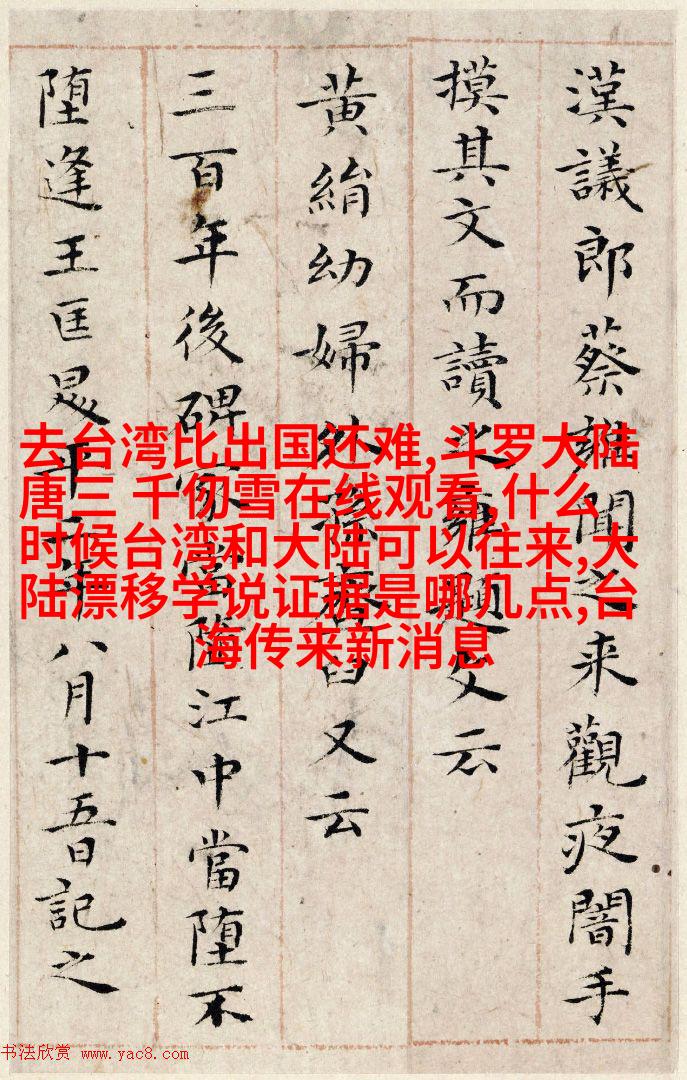 漢議郎蔡雝聞之来觀夜闇手
摸其文而讀之雝題文云
黃絹幼婦外孫齏臼又云
三百年後碑冢當堕江中當堕不
堕逢王匡 平二年八月十五日記之
去台湾比出国还难,斗罗大陆
唐三 千仞雪在线观看,什么
时候台湾和大陆可以往来,大
陆漂移学说证据是哪几点,台
海传来新消息
书法欣赏 www.yac8.com